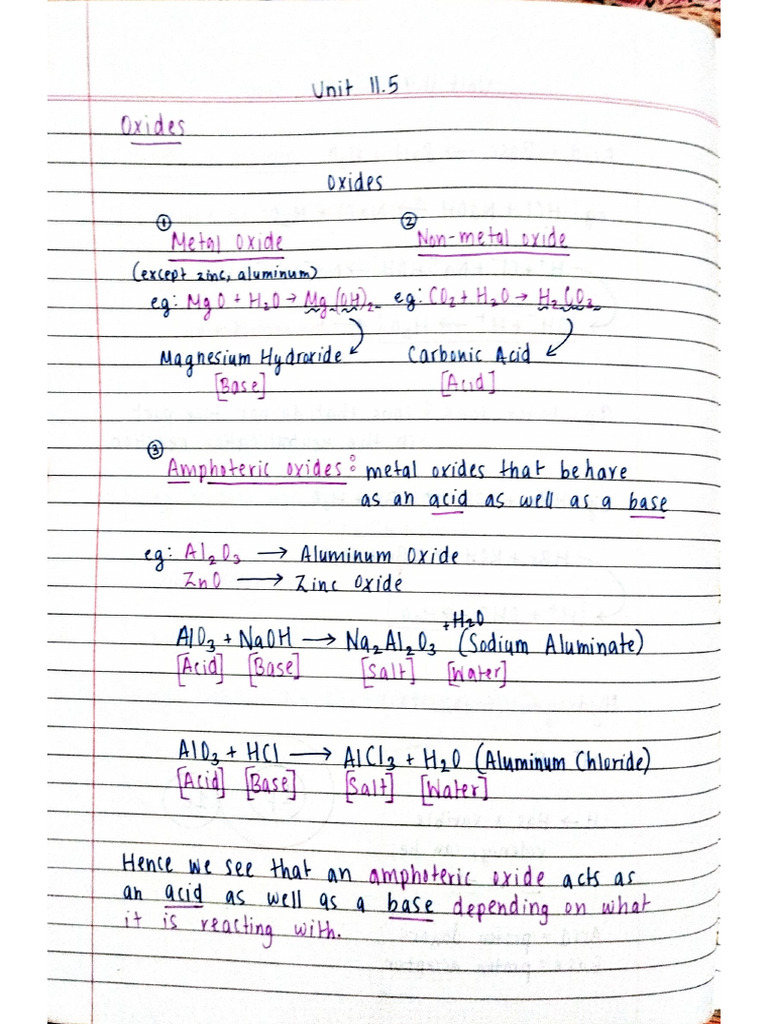 Unit 11.5
Oxides
Oxides
① Metal Oxide
(except zinc, aluminum)
eg: MgO + H₂O → Mg(OH)₂
Magnesium Hydroxide
[Base]
② Non-metal oxide
eg: CO₂ + H₂O → H₂CO₃
Carbonic Acid
[Acid]
③ Amphoteric oxides: metal oxides that behave
as an acid as well as a base
eg: Al₂O₃ → Aluminum Oxide
ZnO → Zinc Oxide
AlO₃ + NaOH → Na₂Al₂O₃ +H₂O (Sodium Aluminate)
[Acid] [Base] [Salt] [Water]
AlO₃ + HCl → AlCl₃ + H₂O (Aluminum Chloride)
[Acid] [Base] [Salt] [Water]
Hence we see that an amphoteric oxide acts as
an acid as well as a base depending on what
it is reacting with.